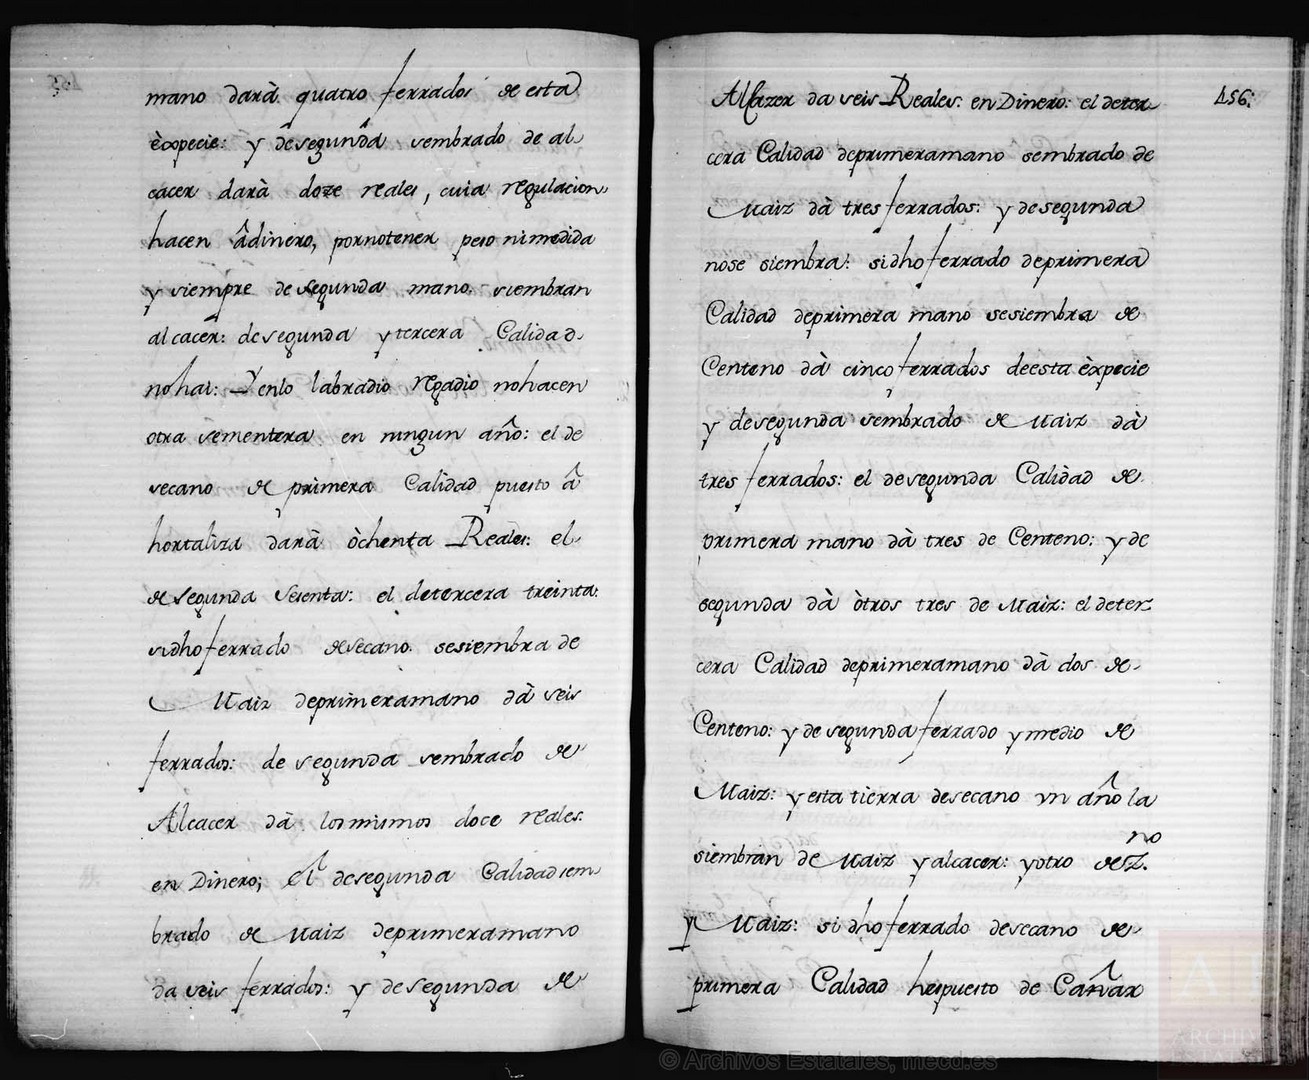 mano darà quatro ferrados de esta
èxpecie: y desegunda sembrado de al-
cacer darà doze reales, cuia regulacion
hacen âdinero, pornotener peso nimedida
y siempre de segunda mano siembran
alcacer: desegunda ytercera Calidad
nohai: Yenlo labradio regadio nohacen
otra sementera en ningun año: el de
secano de primera Calidad puesto â
hortaliza darà òchenta Reales: el
de segunda sesenta: el detercera treinta:
sidho ferrado desecano sesiembra de
Maiz deprimeramano dà seis
ferrados: de segunda sembrado de
Alcacer dà losmismos doce reales
en Dinero; El desegunda Calidad sem
brado de Maiz deprimeramano
da seis ferrados: y desegunda de
Alcazer da seis Reales: en Dinero: el deter
cera Calidad deprimeramano sembrado de
Maiz dà tres ferrados: y desegunda
nose siembra: sidho ferrado deprimera
Calidad deprimera mano sesiembra de
Centeno dà cinco ferrados deesta èxpecie
y desegunda sembrado de Maiz dà
tres ferrados: el desegunda Calidad de
primera mano dà tres de Centeno: y de
segunda dà òtros tres de Maiz: el deter
cera Calidad deprimeramano dà dos de
Centeno: y de segunda ferrado ymedio de
Maiz: yesta tierra desecano vn año la
siembran de Maiz yalcacer: yotro de Z.no
y Maiz: si dho ferrado desecano de
primera Calidad hespuesto de Cañar
456.
© Archivos Estatales, mecd.es